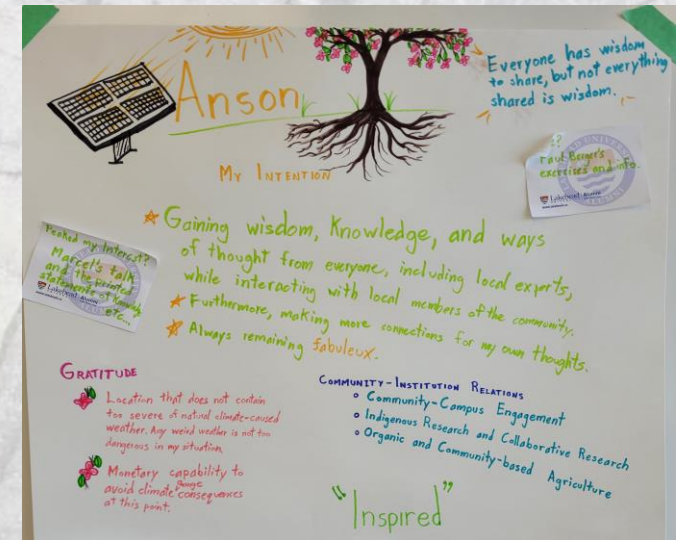 Anson
Everyone has wisdom
to share, but not everything
shared is wisdom.
MY INTENTION
?
Paul Berger's
exercises and info.
Lakehead
ALUMNI
Peaked my Interest?
Marcel's talk
and the printed
statements of
etc...
Lakehead
Gaining wisdom, Knowledge, and ways
of thought from everyone, including local experts,
while interacting with local members of the community.
Furthermore, making more connections for my own thoughts.
Always remaining fabuleux.
GRATITUDE
Location that does not contain
too severe of natural climate-caused
weather. Any weird weather is not too
dangerous in my situation.
Monetary capability to
avoid climate change consequences
at this point.
COMMUNITY-INSTITUTION RELATIONS
Community-Campus Engagement
Indigenous Research and Collaborative Research
Organic and Community-based Agriculture
"Inspired"